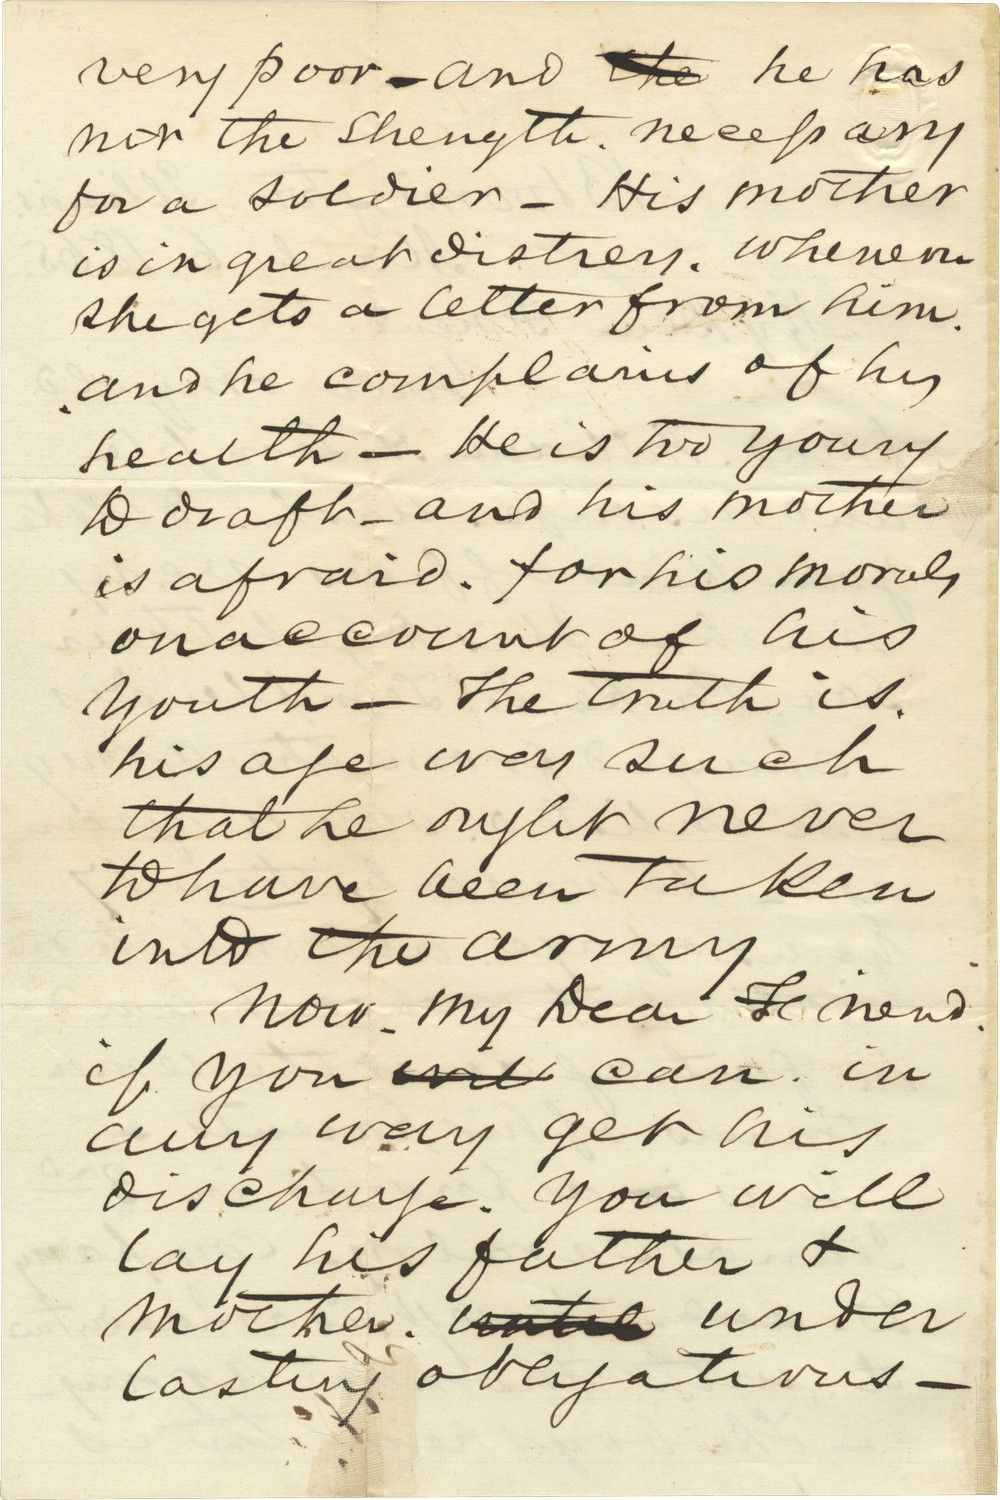 very poor - and the he has
not the strength. necessary
for a soldier - His mother
is in great distress. whenever
she gets a letter from him.
and he complains of his
health - He is too young
to draft - and his mother
is afraid. for his morals
on account of his
youth - The truth is.
his age was such
that he ought never
to have been taken
into the army
Now - My Dear Friend.
if you will can. in
any way get his
discharge. You will
lay his father &
mother. under
lasting obligations -